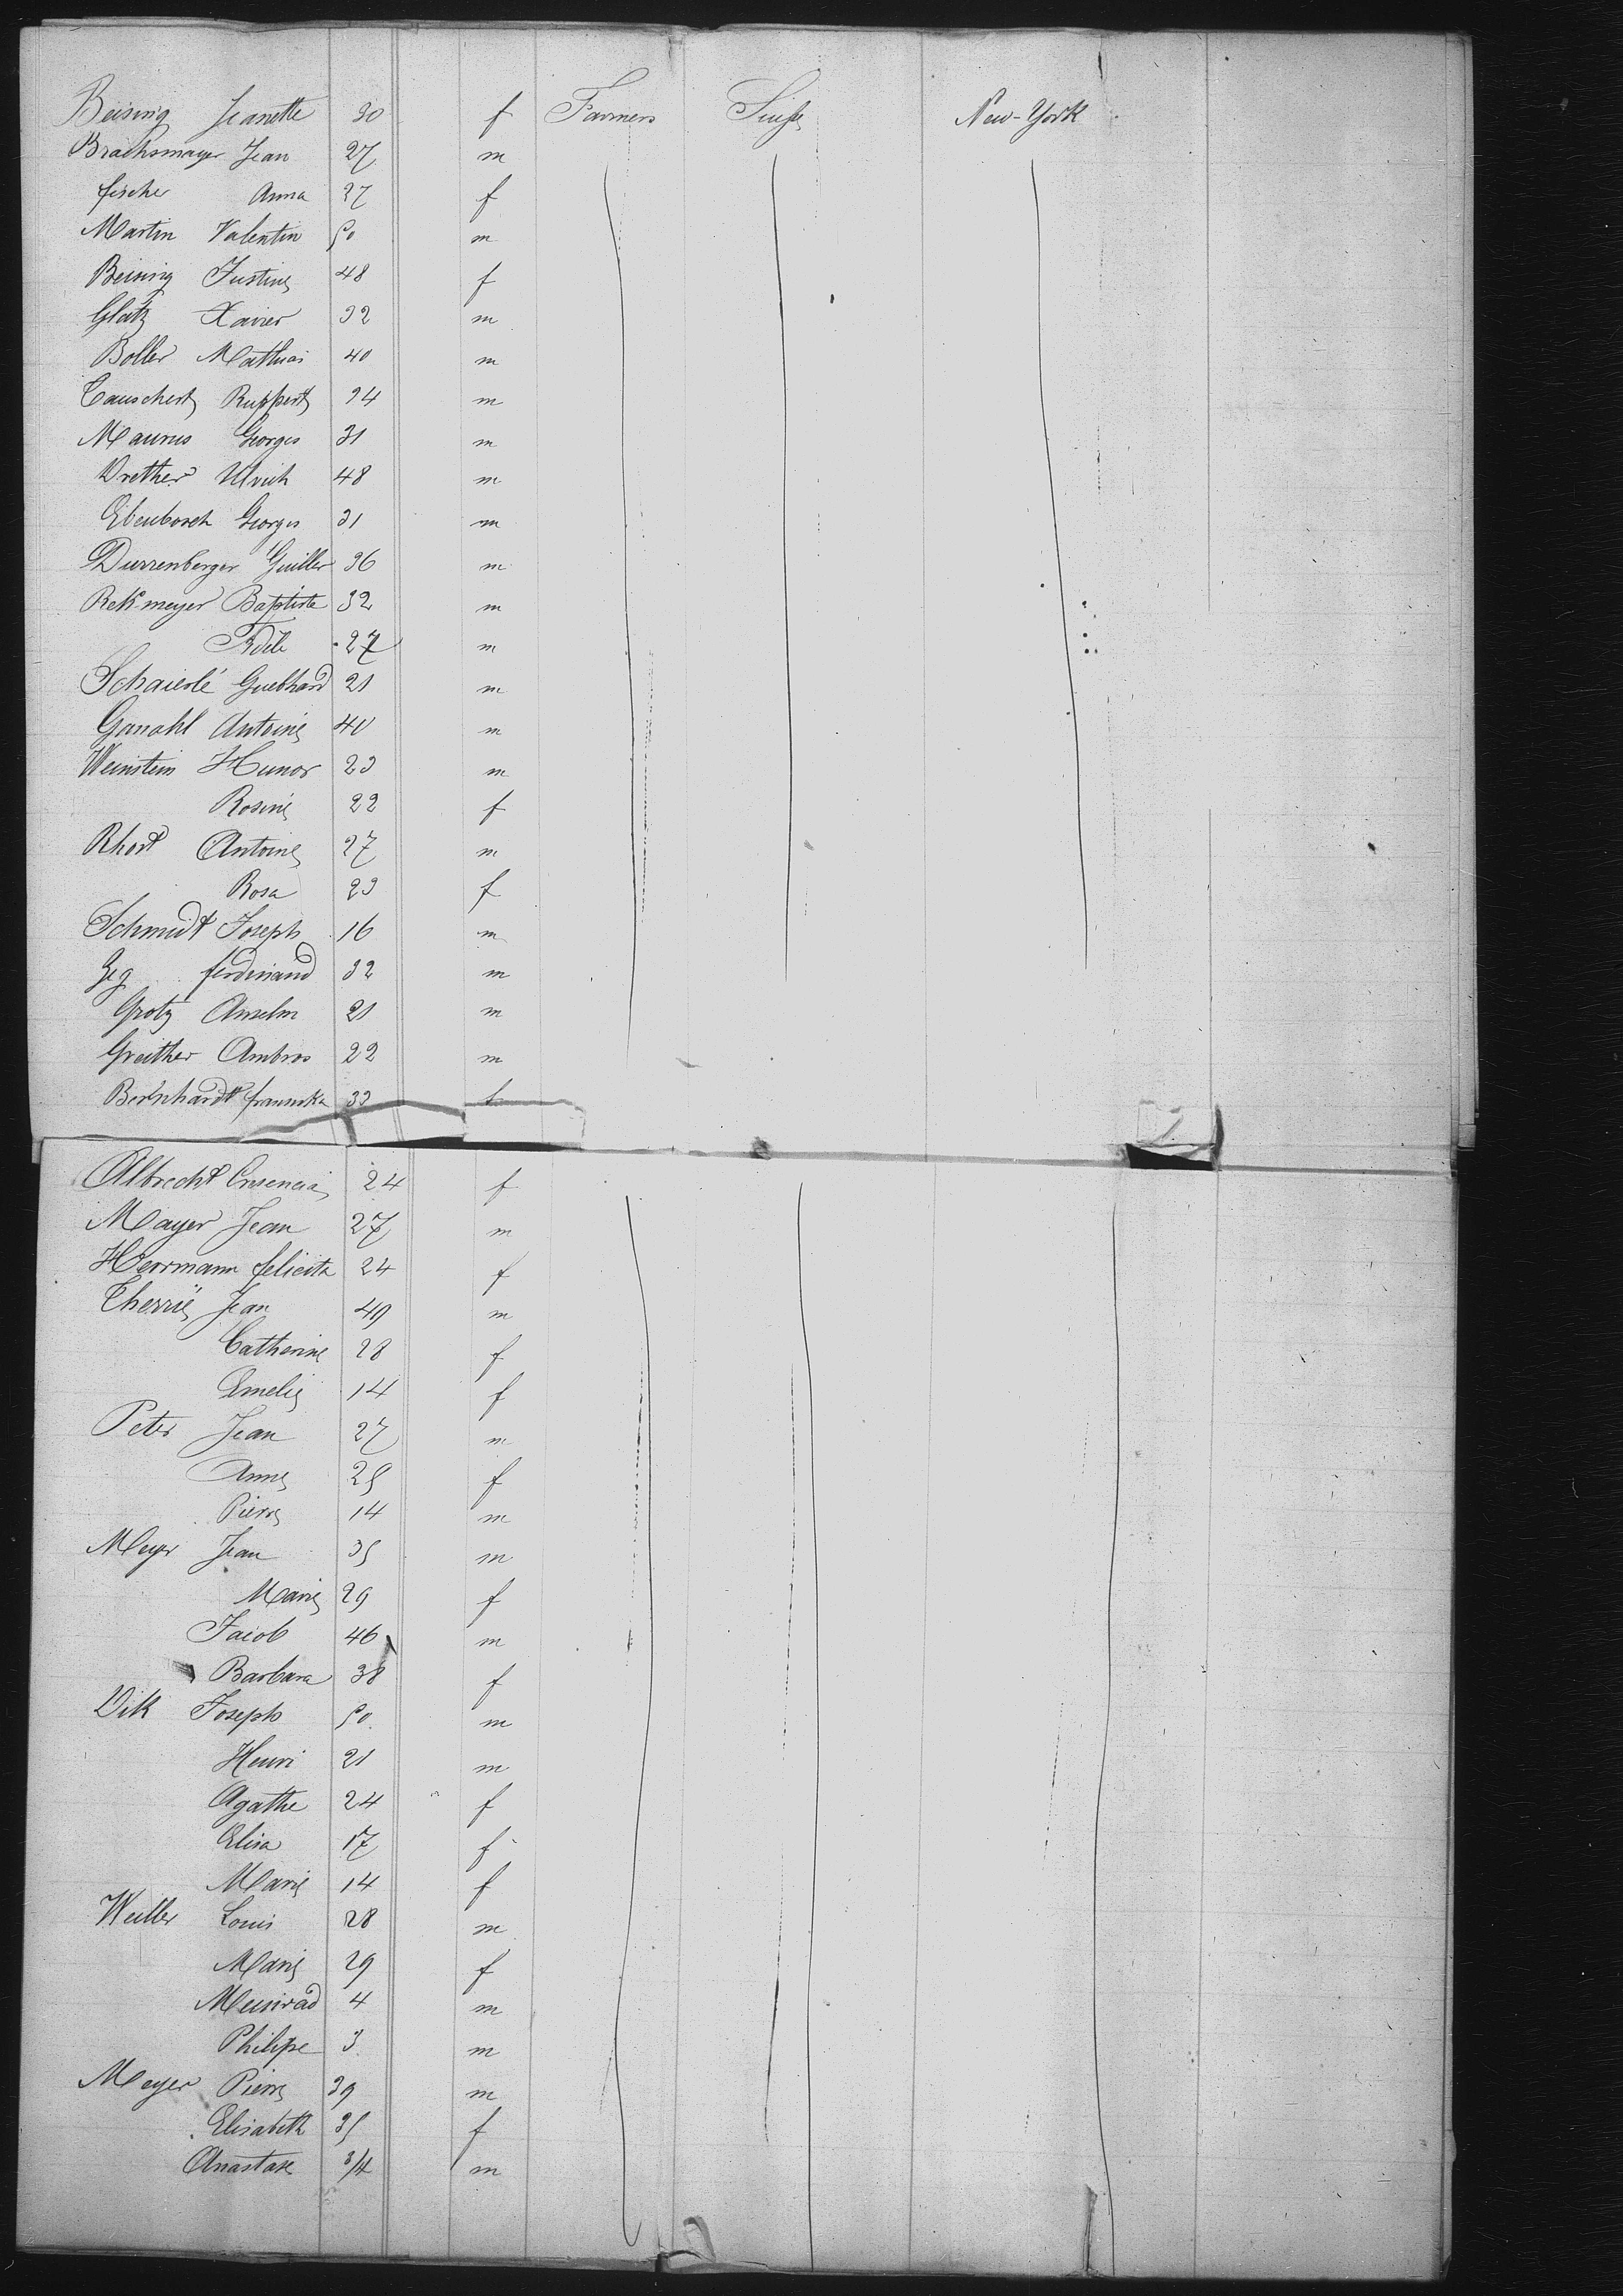 Beising Jeanette 30 f Farmers Suisse New-York
Brachsmayer Jean 27 m
fischer Anna 27 f
Martin Valentin 50 m
Beising Justine 48 f
Glatz Xavier 32 m
Boller Mathias 40 m
Tauschert Ruppert 34 m
Maurus Georges 31 m
Vrether Ulrich 48 m
Ebenborch Georges 31 m
Durrenberger Guiller 36 m
Rekmeyer Baptiste 32 m
Fidèle 27 m
Schaierlé Guebhard 21 m
Ganahl Antoine 40 m
Weinstein Hunor 23 m
Rosine 22 f
Rhort Antoine 27 m
Rosa 23 f
Schmidt Joseph 16 m
Zeg ferdinand 32 m
Grotz Anselm 21 m
Greither Ambros 22 m
Bernhardt 33 f
Albrecht Cresencia 24 f
Mayer Jean 27 m
Herrmann felicita 24 f
Therrië Jean 49 m
Catherine 28 f
Emelie 14 f
Peter Jean 27 m
Anne 25 f
Pierre 14 m
Meyer Jean 35 m
Marie 29 f
Jacob 46 m
Barbara 38 f
Vik Joseph 50 m
Henri 21 m
Agathe 24 f
Elisa 17 f
Marie 14 f
Weiller Louis 28 m
Marie 29 f
Meinrad 4 m
Philipe 3 m
Meyer Pierre 39 m
Elisabeth 35 f
Anastase 3/4 m